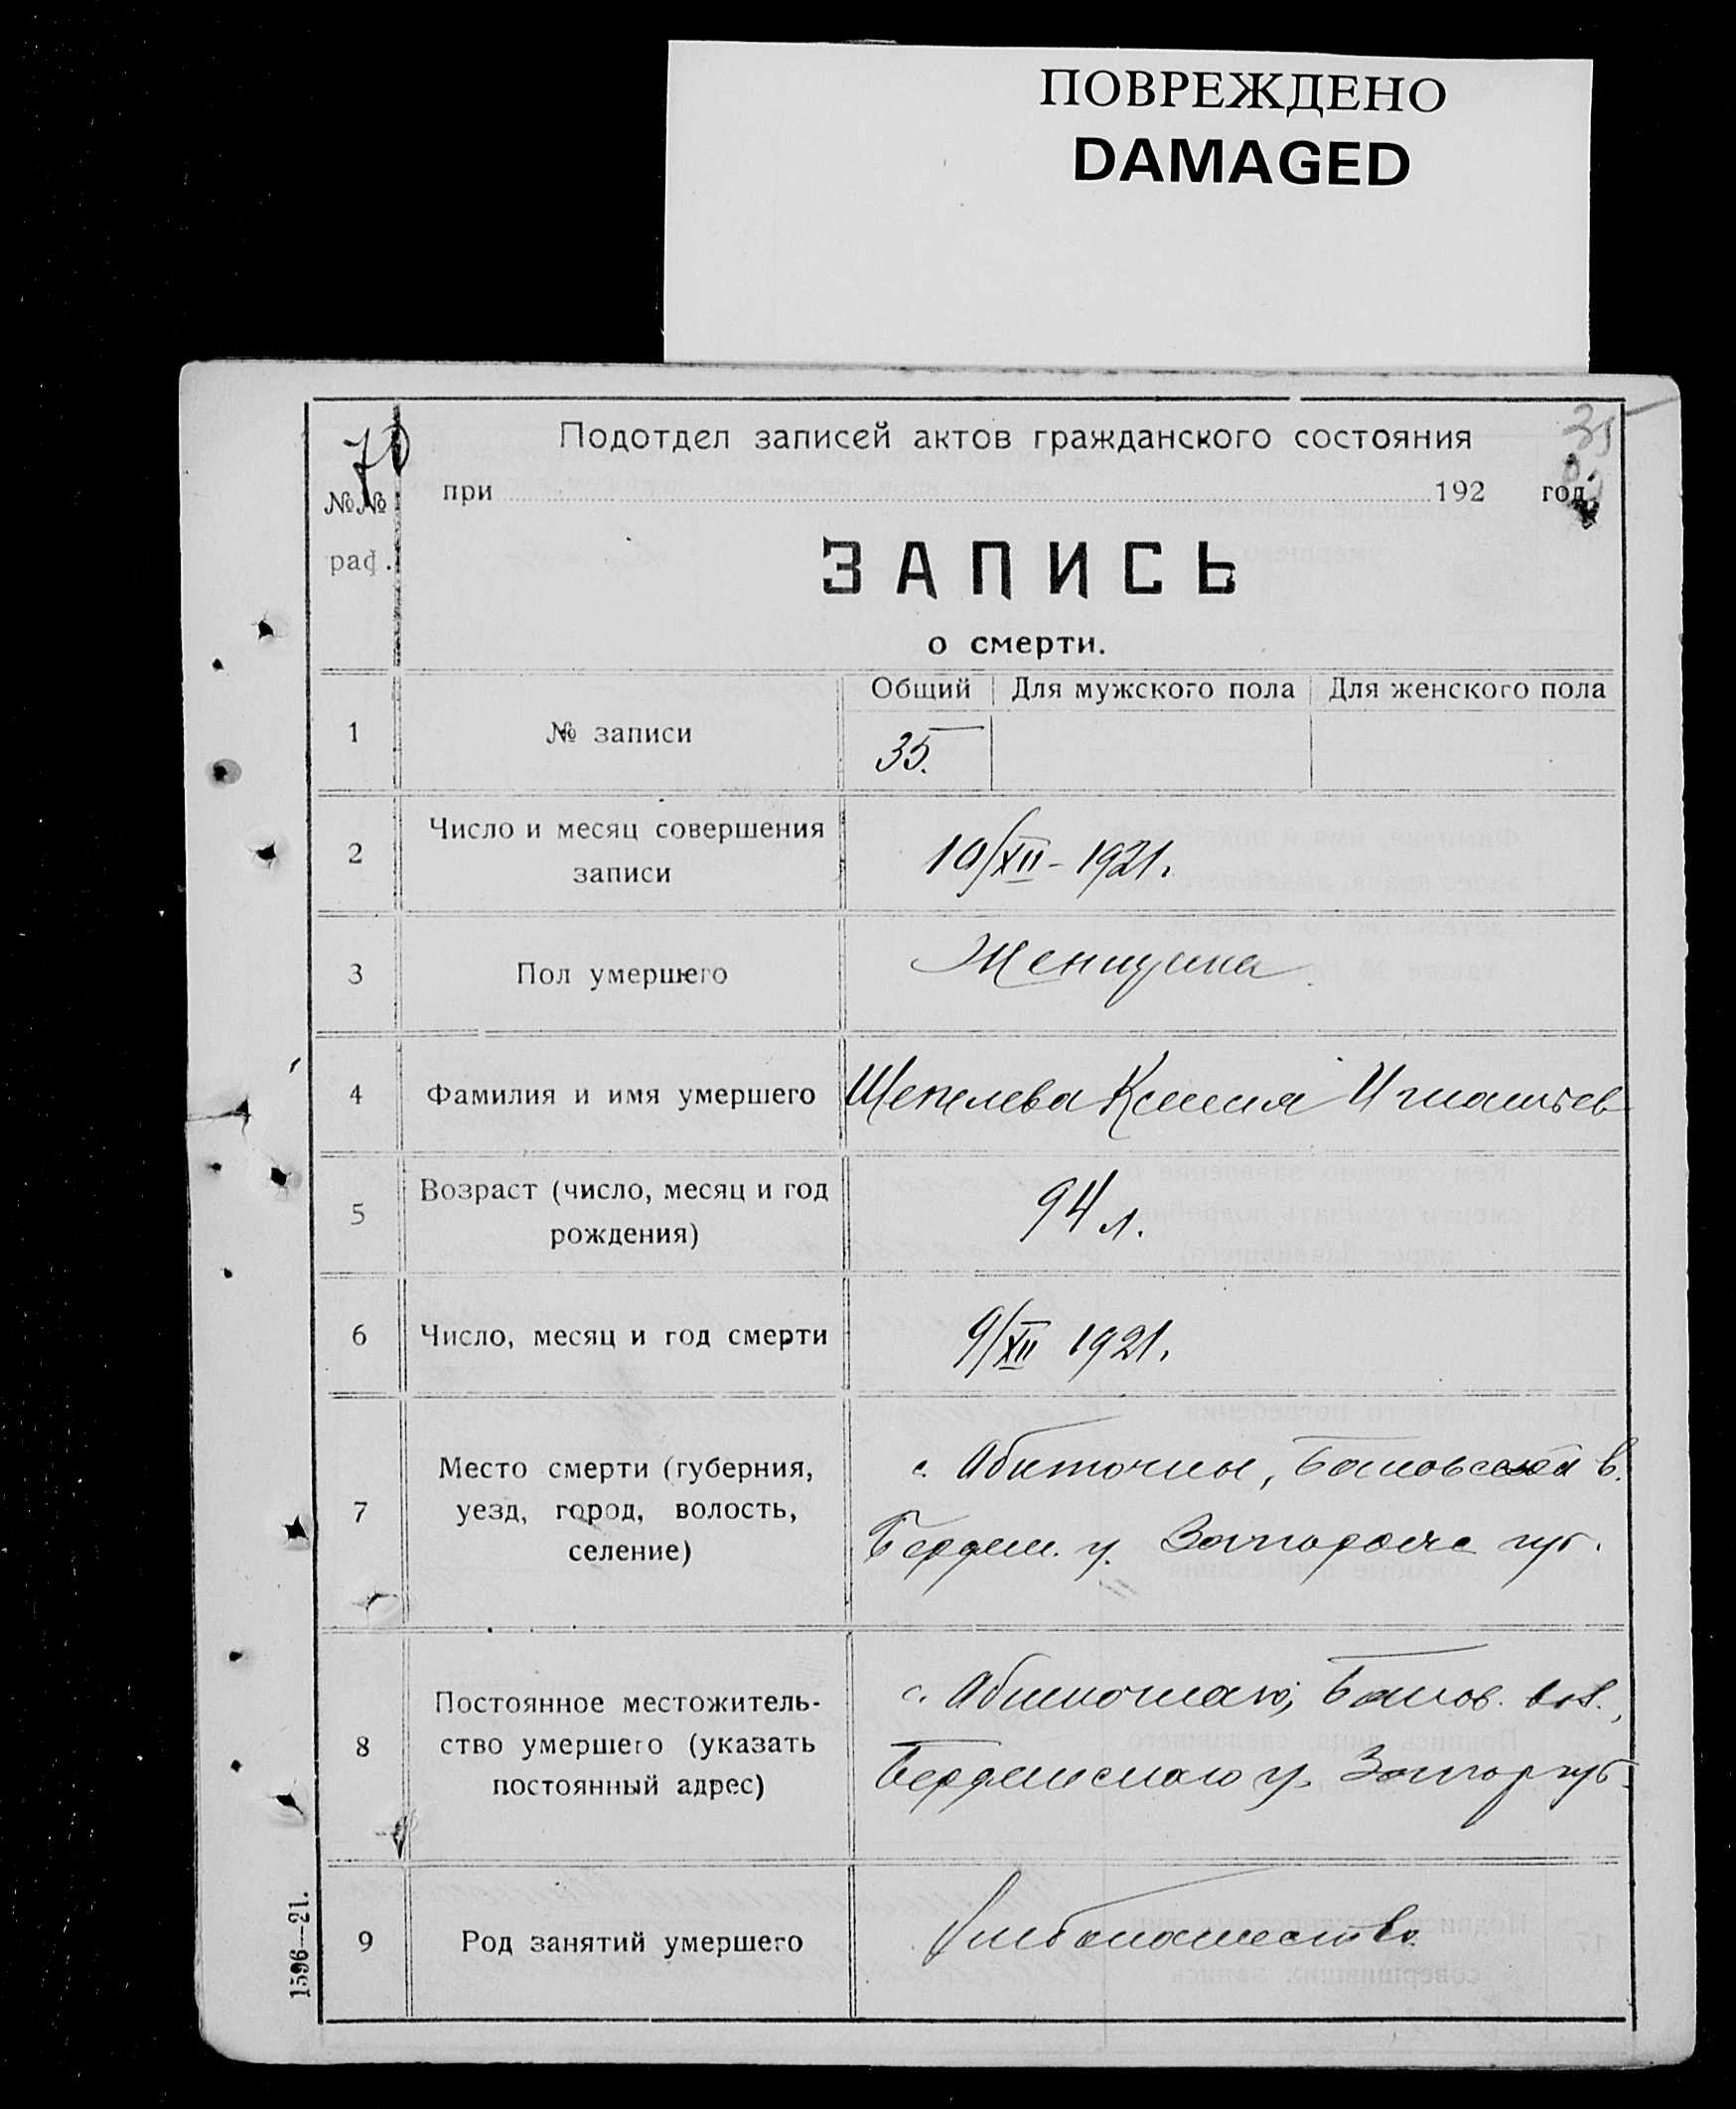 ПОВРЕЖДЕНО
DAMAGED
70
35
Подотдел записей актов гражданского состояния
№№ при 192 год.
раф.
ЗАПИСЬ
о смерти.
Общий Для мужского пола Для женского пола
1 № записи 35.
2 Число и месяц совершения
записи 10/XII - 1921.
3 Пол умершего Женщина
4 Фамилия и имя умершего Шепелева Ксения Игнатьев
5 Возраст (число, месяц и год
рождения) 94 л.
6 Число, месяц и год смерти 9/XII 1921.
Место смерти (губерния, с. Обиточны, Бановской в.
7 уезд, город, волость,
селение) Бердян. у. Запорожс губ.
Постоянное местожитель- с. Обиточная, Банов. вол.,
8 ство умершего (указать
постоянный адрес) Бердянского у. Запор губ.
9 Род занятий умершего хлебопашество
1596—21.